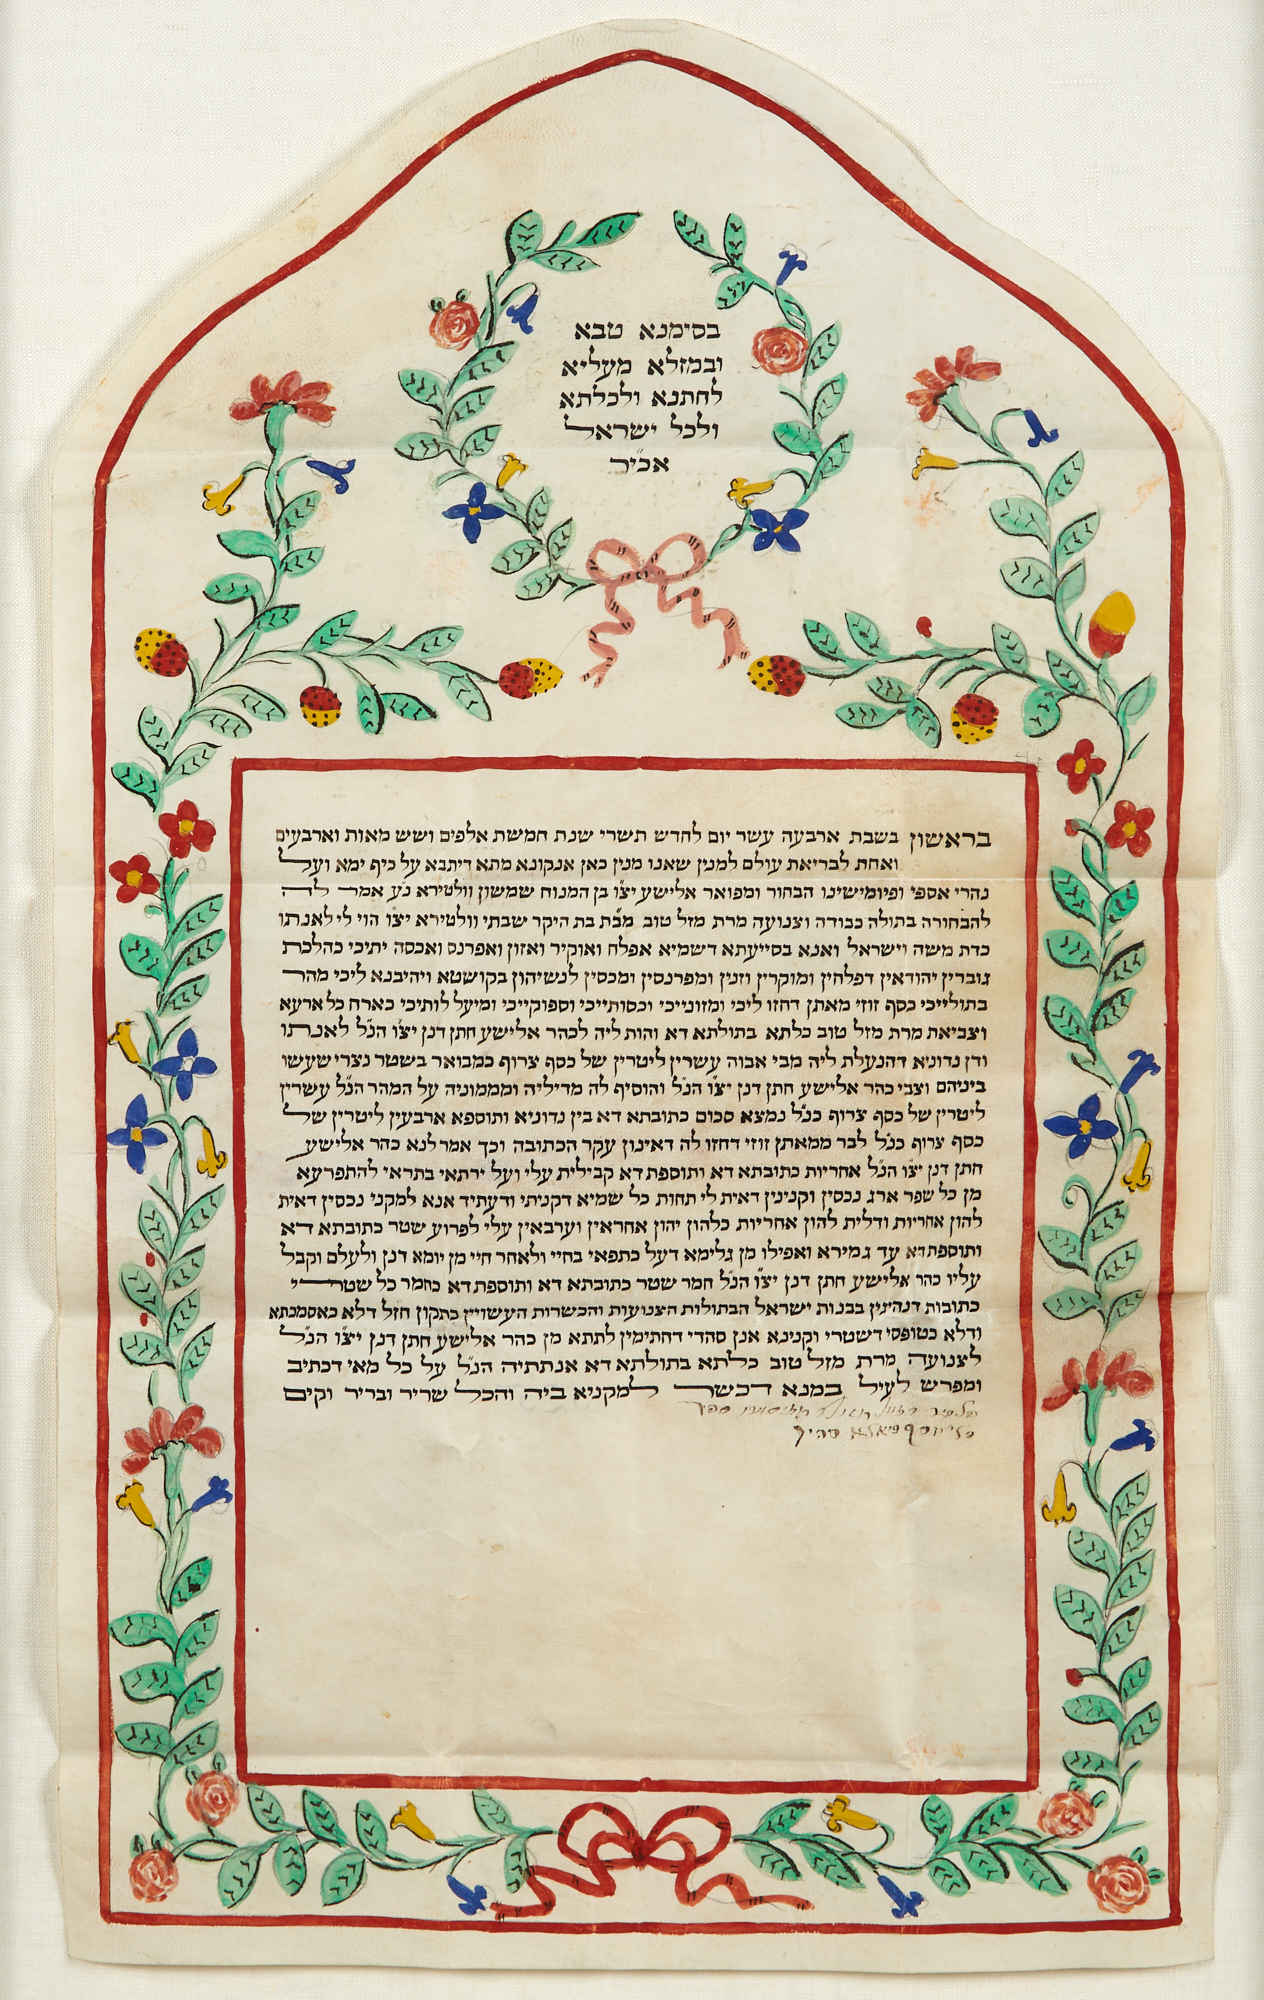 בסימנא טבא
ובמזלא מעליא
לחתנא ולכלתא
ולכל ישראל
אכי״ר
בראשון בשבת ארבעה עשר יום לחדש תשרי שנת חמשת אלפים ושש מאות וארבעים
ואחת לבריאת עולם למנין שאנו מנין כאן אנקונא מתא דיתבא על כיף ימא ועל
נהרי אספי ופיומישינו הבחור ומפואר אלישע יצ״ו בן המנוח שמשון וולטירא נ״ע אמר לה
להבחורה בתולה כבודה וצנועה מרת מזל טוב מב״ת בת היקר שבתי וולטירא יצ״ו הוי לי לאנתו
כדת משה וישראל ואנא בסייעתא דשמיא אפלח ואוקיר ואזון ואפרנס ואכסה יתיכי כהלכת
גוברין יהודאין דפלחין ומוקרין וזנין ומפרנסין ומכסין לנשיהון בקושטא ויהיבנא ליכי מהר
בתולייכי כסף זוזי מאתן דחזו ליכי ומזונייכי וכסותייכי וספוקייכי ומיעל לותיכי כארח כל ארעא
וצביאת מרת מזל טוב כלתא בתולתא דא והות ליה לכהר אלישע חתן דנן יצ״ו הנ״ל לאנתו
ודן נדוניא דהנעלת ליה מבי אבוה עשרין ליטרין של כסף צרוף כמבואר בשטר נצרי שעשו
ביניהם וצבי כהר אלישע חתן דנן יצ״ו הנ״ל והוסיף לה מדיליה ומממוניה על המהר הנ״ל עשרין
ליטרין של כסף צרוף כנ״ל נמצא סכום כתובתא דא בין נדוניא ותוספא ארבעין ליטרין של
כסף צרוף כנ״ל לבר ממאתן זוזי דחזו לה דאינון עקר הכתובה וכך אמר לנא כהר אלישע
חתן דנן יצ״ו הנ״ל אחריות כתובתא דא ותוספת דא קבילית עלי ועל ירתאי בתראי להתפרעא
מן כל שפר ארג נכסין וקנינין דאית לי תחות כל שמיא דקניתי ודעתיד אנא למקני נכסין דאית
להון אחריות ודלית להון אחריות כלהון יהון אחראין וערבאין עלי לפרוע שטר כתובתא דא
ותוספת דא עד גמירא ואפילו מן גלימא דעל כתפאי בחיי ולאחר חיי מן יומא דנן ולעלם וקבל
עליו כהר אלישע חתן דנן יצ״ו הנ״ל חמר שטר כתובתא דא ותוספת דא כחמר כל שטרי
כתובות דנהיגין בבנות ישראל הבתולות הצנועות והכשרות העשויין כתקון חז״ל דלא כאסמכתא
ודלא כטופסי דשטרי וקנינא אנן סהדי דחתימין לתתא מן כהר אלישע חתן דנן יצ״ו הנ״ל
לצנועה מרת מזל טוב כלתא בתולתא דא אנתתיה הנ״ל על כל מאי דכתיב
ומפרש לעיל במנא דכשר למקניא ביה והכל שריר ובריר וקים